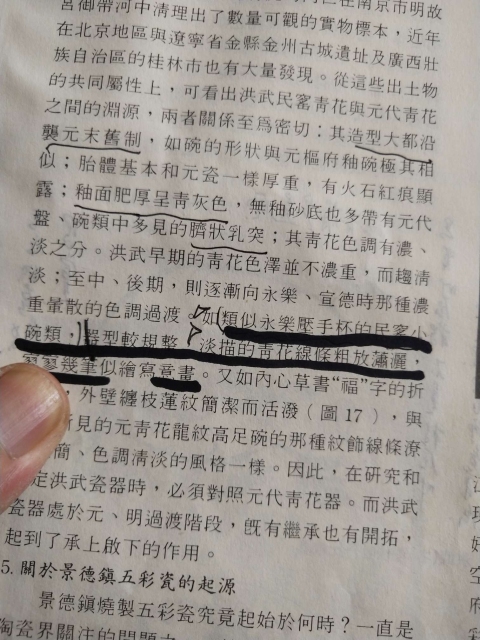 宮御帶河中淸理出了數量可觀的實物標本，近年
在北京地區與遼寧省金縣金州古城遺址及廣西壯
族自治區的桂林市也有大量發現。從這些出土物
的共同屬性上，可看出洪武民窰靑花與元代靑花
之間的淵源，兩者關係至爲密切：其造型大都沿
襲元末舊制，如碗的形狀與元樞府釉碗極其相
似；胎體基本和元瓷一樣厚重，有火石紅痕顯
露；釉面肥厚呈靑灰色，無釉砂底也多帶有元代
盤、碗類中多見的臍狀乳突；其靑花色調有濃、
淡之分。洪武早期的靑花色澤並不濃重，而趨淸
淡；至中、後期，則逐漸向永樂、宣德時那種濃
重暈散的色調過渡。如類似永樂壓手杯的民窰小
碗類，型較規整，淡描的靑花線條粗放瀟灑，
寥寥幾筆似繪寫意畫。又如內心草書“福”字的折
外壁纏枝蓮紋簡潔而活潑（圖17），與
所見的元靑花龍紋高足碗的那種紋飾線條潦
簡、色調淸淡的風格一樣。因此，在硏究和
定洪武瓷器時，必須對照元代靑花器。而洪武
瓷器處於元、明過渡階段，旣有繼承也有開拓，
起到了承上啟下的作用。
5.關於景德鎭五彩瓷的起源
景德鎭燒製五彩瓷究竟起始於何時？一直是
陶瓷界關注的問題